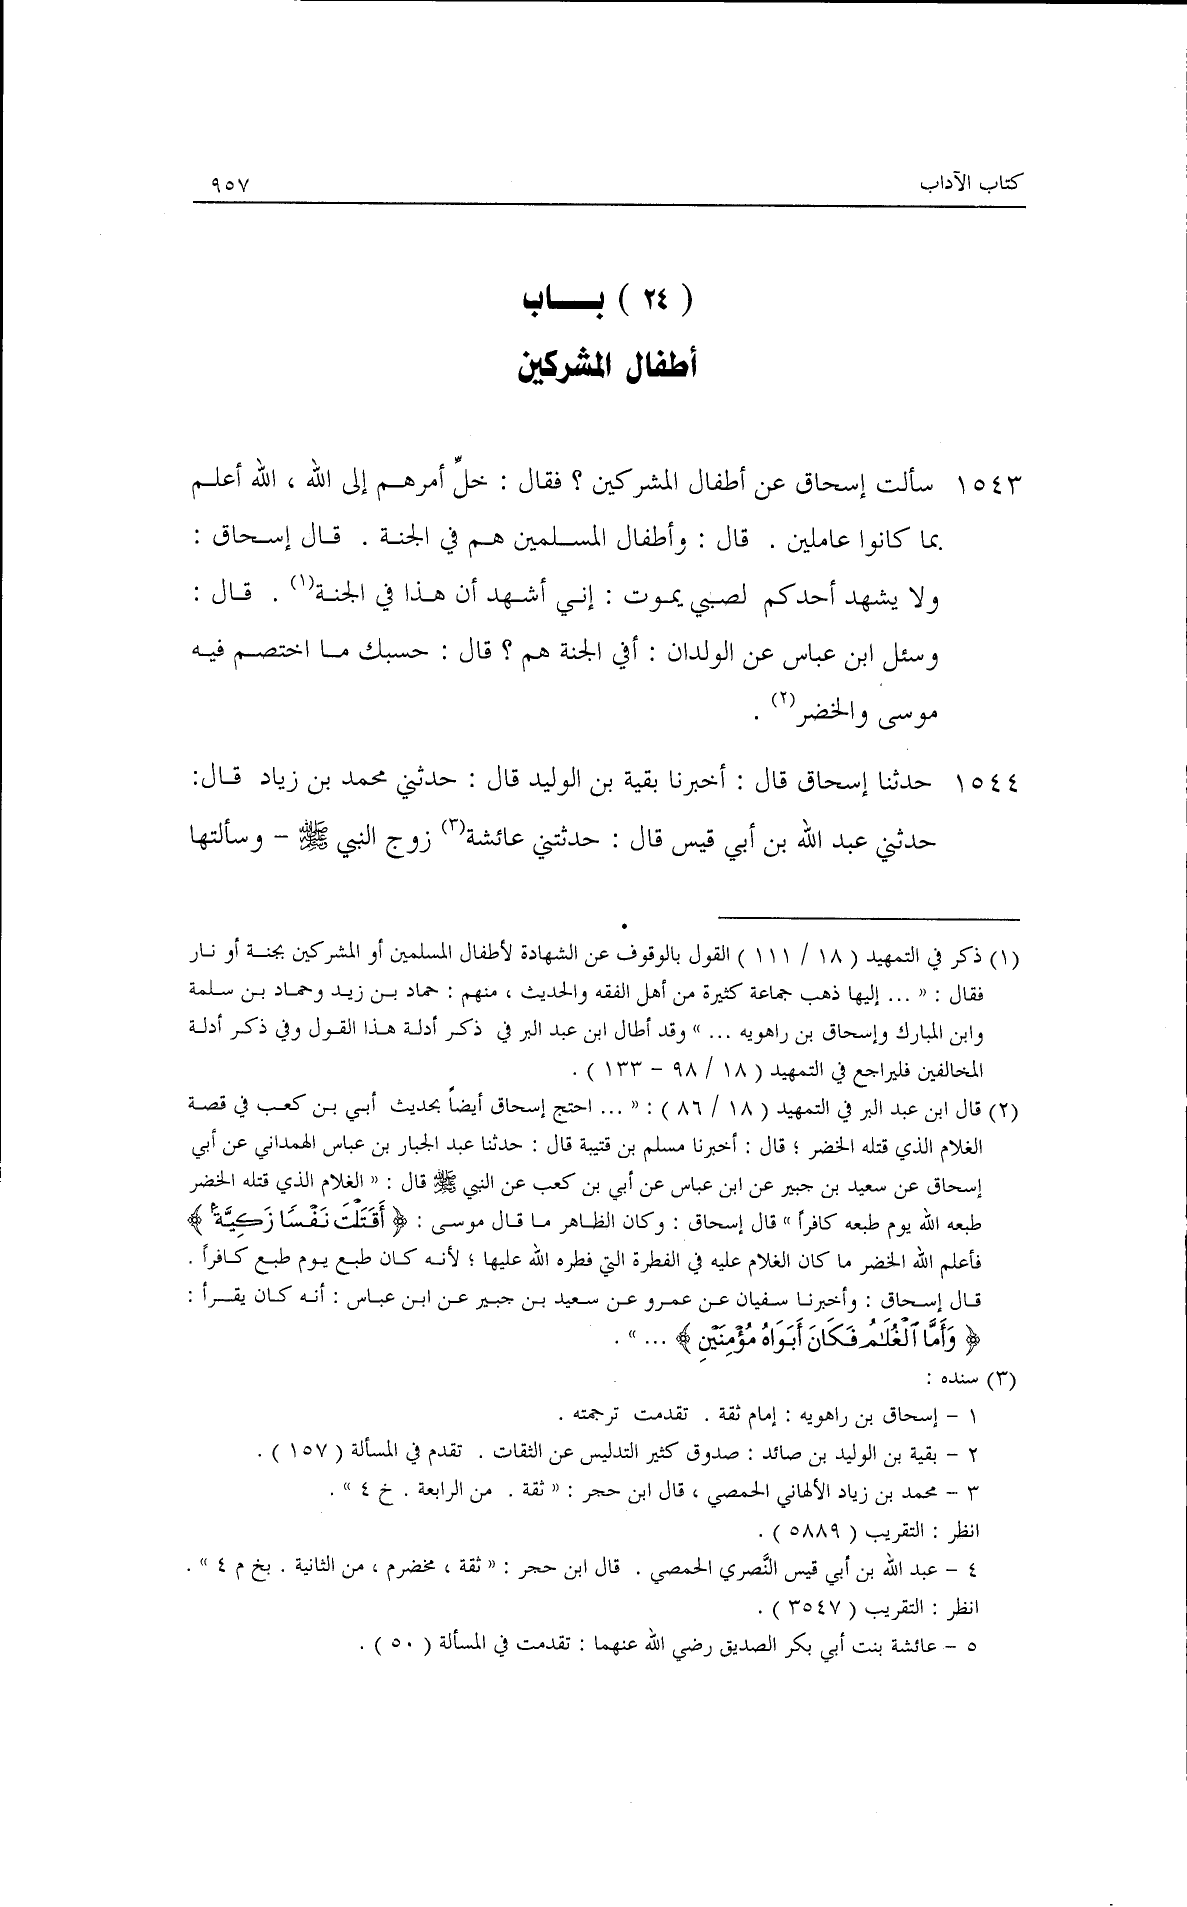 كتاب الآداب ٩٥٧
( ٢٤ ) بـــاب
أطفال المشركين
١٥٤٣ سألت إسحاق عن أطفال المشركين ؟ فقال : خلِّ أمرهم إلى الله ، الله أعلم
بما كانوا عاملين . قال : وأطفال المسلمين هم في الجنة . قال إسحاق :
ولا يشهد أحدكم لصبي يموت : إني أشهد أن هذا في الجنة(١) . قال :
وسئل ابن عباس عن الولدان : أفي الجنة هم ؟ قال : حسبك ما اختصم فيه
موسى والخضر(٢) .
١٥٤٤ حدثنا إسحاق قال : أخبرنا بقية بن الوليد قال : حدثني محمد بن زياد قال:
حدثني عبد الله بن أبي قيس قال : حدثتني عائشة(٣) زوج النبي ﷺ – وسألتها
(١) ذكر في التمهيد ( ١٨ / ١١١ ) القول بالوقوف عن الشهادة لأطفال المسلمين أو المشركين بجنة أو نار
فقال : « ... إليها ذهب جماعة كثيرة من أهل الفقه والحديث ، منهم : حماد بن زيد وحماد بن سلمة
وابن المبارك وإسحاق بن راهويه ... » وقد أطال ابن عبد البر في ذكر أدلة هذا القول وفي ذكر أدلة
المخالفين فليراجع في التمهيد ( ١٨ / ٩٨ – ١٣٣ ) .
(٢) قال ابن عبد البر في التمهيد ( ١٨ / ٨٦ ) : « ... احتج إسحاق أيضاً بحديث أبي بن كعب في قصة
الغلام الذي قتله الخضر ؛ قال : أخبرنا مسلم بن قتيبة قال : حدثنا عبد الجبار بن عباس الهمداني عن أبي
إسحاق عن سعيد بن جبير عن ابن عباس عن أبي بن كعب عن النبي ﷺ قال : « الغلام الذي قتله الخضر
طبعه الله يوم طبعه كافراً » قال إسحاق : وكان الظاهر ما قال موسى : ﴿ أَقَتَلْتَ نَفْسًا زَكِيَّةً ﴾
فأعلم الله الخضر ما كان الغلام عليه في الفطرة التي فطره الله عليها ؛ لأنه كان طبع يوم طبع كافراً .
قال إسحاق : وأخبرنا سفيان عن عمرو عن سعيد بن جبير عن ابن عباس : أنه كان يقرأ :
﴿ وَأَمَّا ٱلْغُلَـٰمُ فَكَانَ أَبَوَاهُ مُؤْمِنَيْنِ ﴾ ... » .
(٣) سنده :
١ – إسحاق بن راهويه : إمام ثقة . تقدمت ترجمته .
٢ – بقية بن الوليد بن صائد : صدوق كثير التدليس عن الثقات . تقدم في المسألة ( ١٥٧ ) .
٣ – محمد بن زياد الألهاني الحمصي ، قال ابن حجر : « ثقة . من الرابعة . خ ٤ » .
انظر : التقريب ( ٥٨٨٩ ) .
٤ – عبد الله بن أبي قيس النَّصري الحمصي . قال ابن حجر : « ثقة ، مخضرم ، من الثانية . بخ م ٤ » .
انظر : التقريب ( ٣٥٤٧ ) .
٥ – عائشة بنت أبي بكر الصديق رضي الله عنهما : تقدمت في المسألة ( ٥٠ ) .